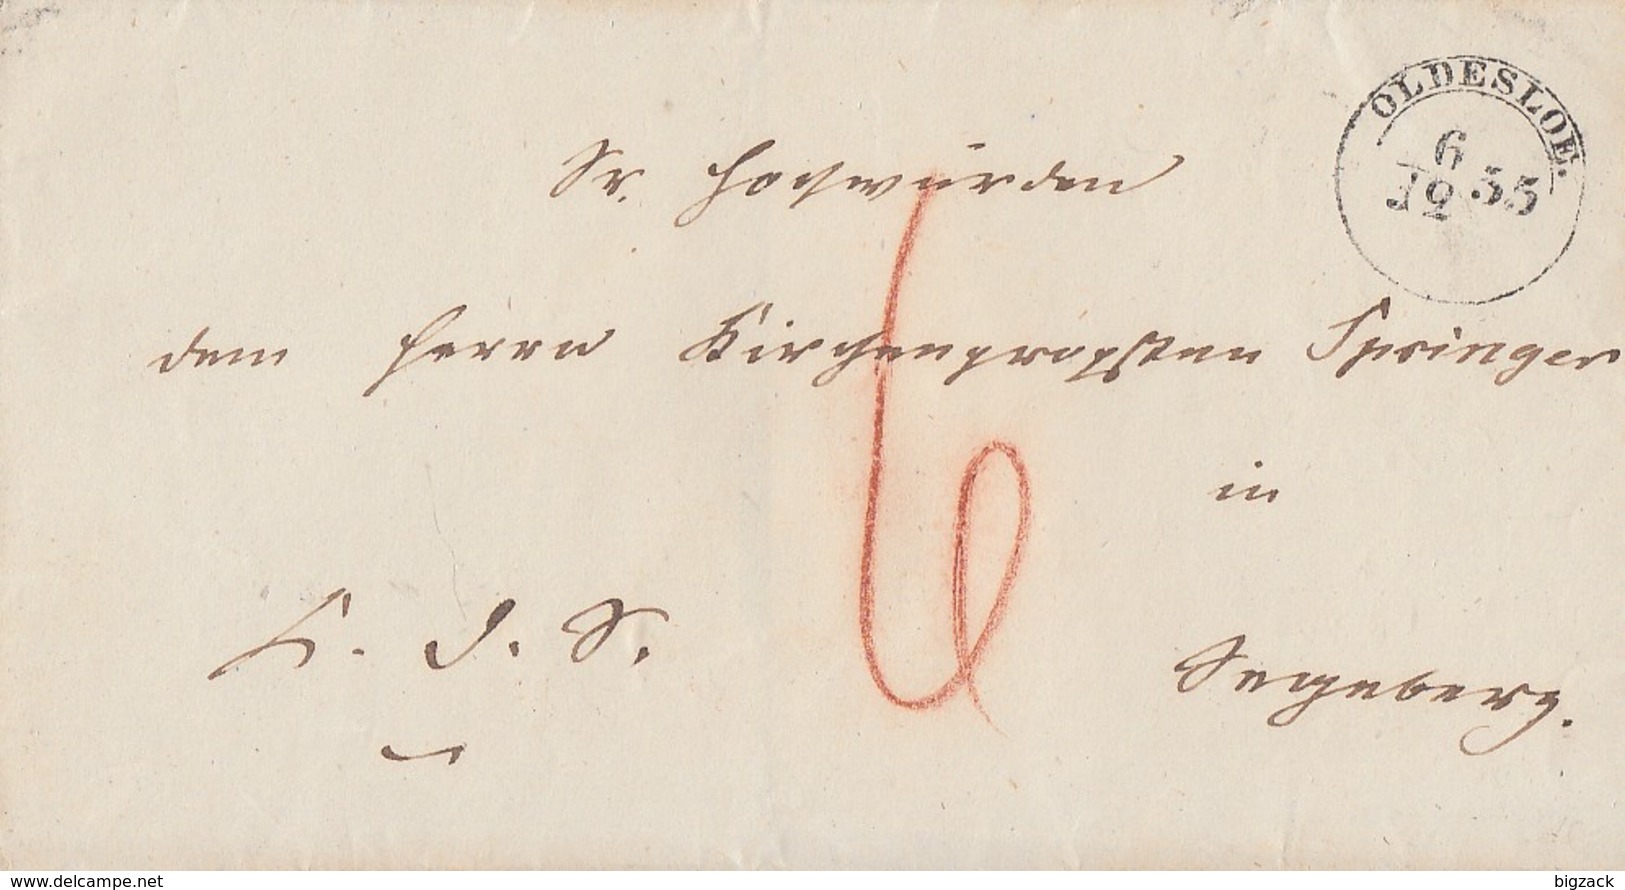 OLDESLOE.
6
12 55
Sr. Hochwürden
dem Herrn Kirchenpropsten Springer
in
6
Segeberg.
www.delcampe.net
bigzack